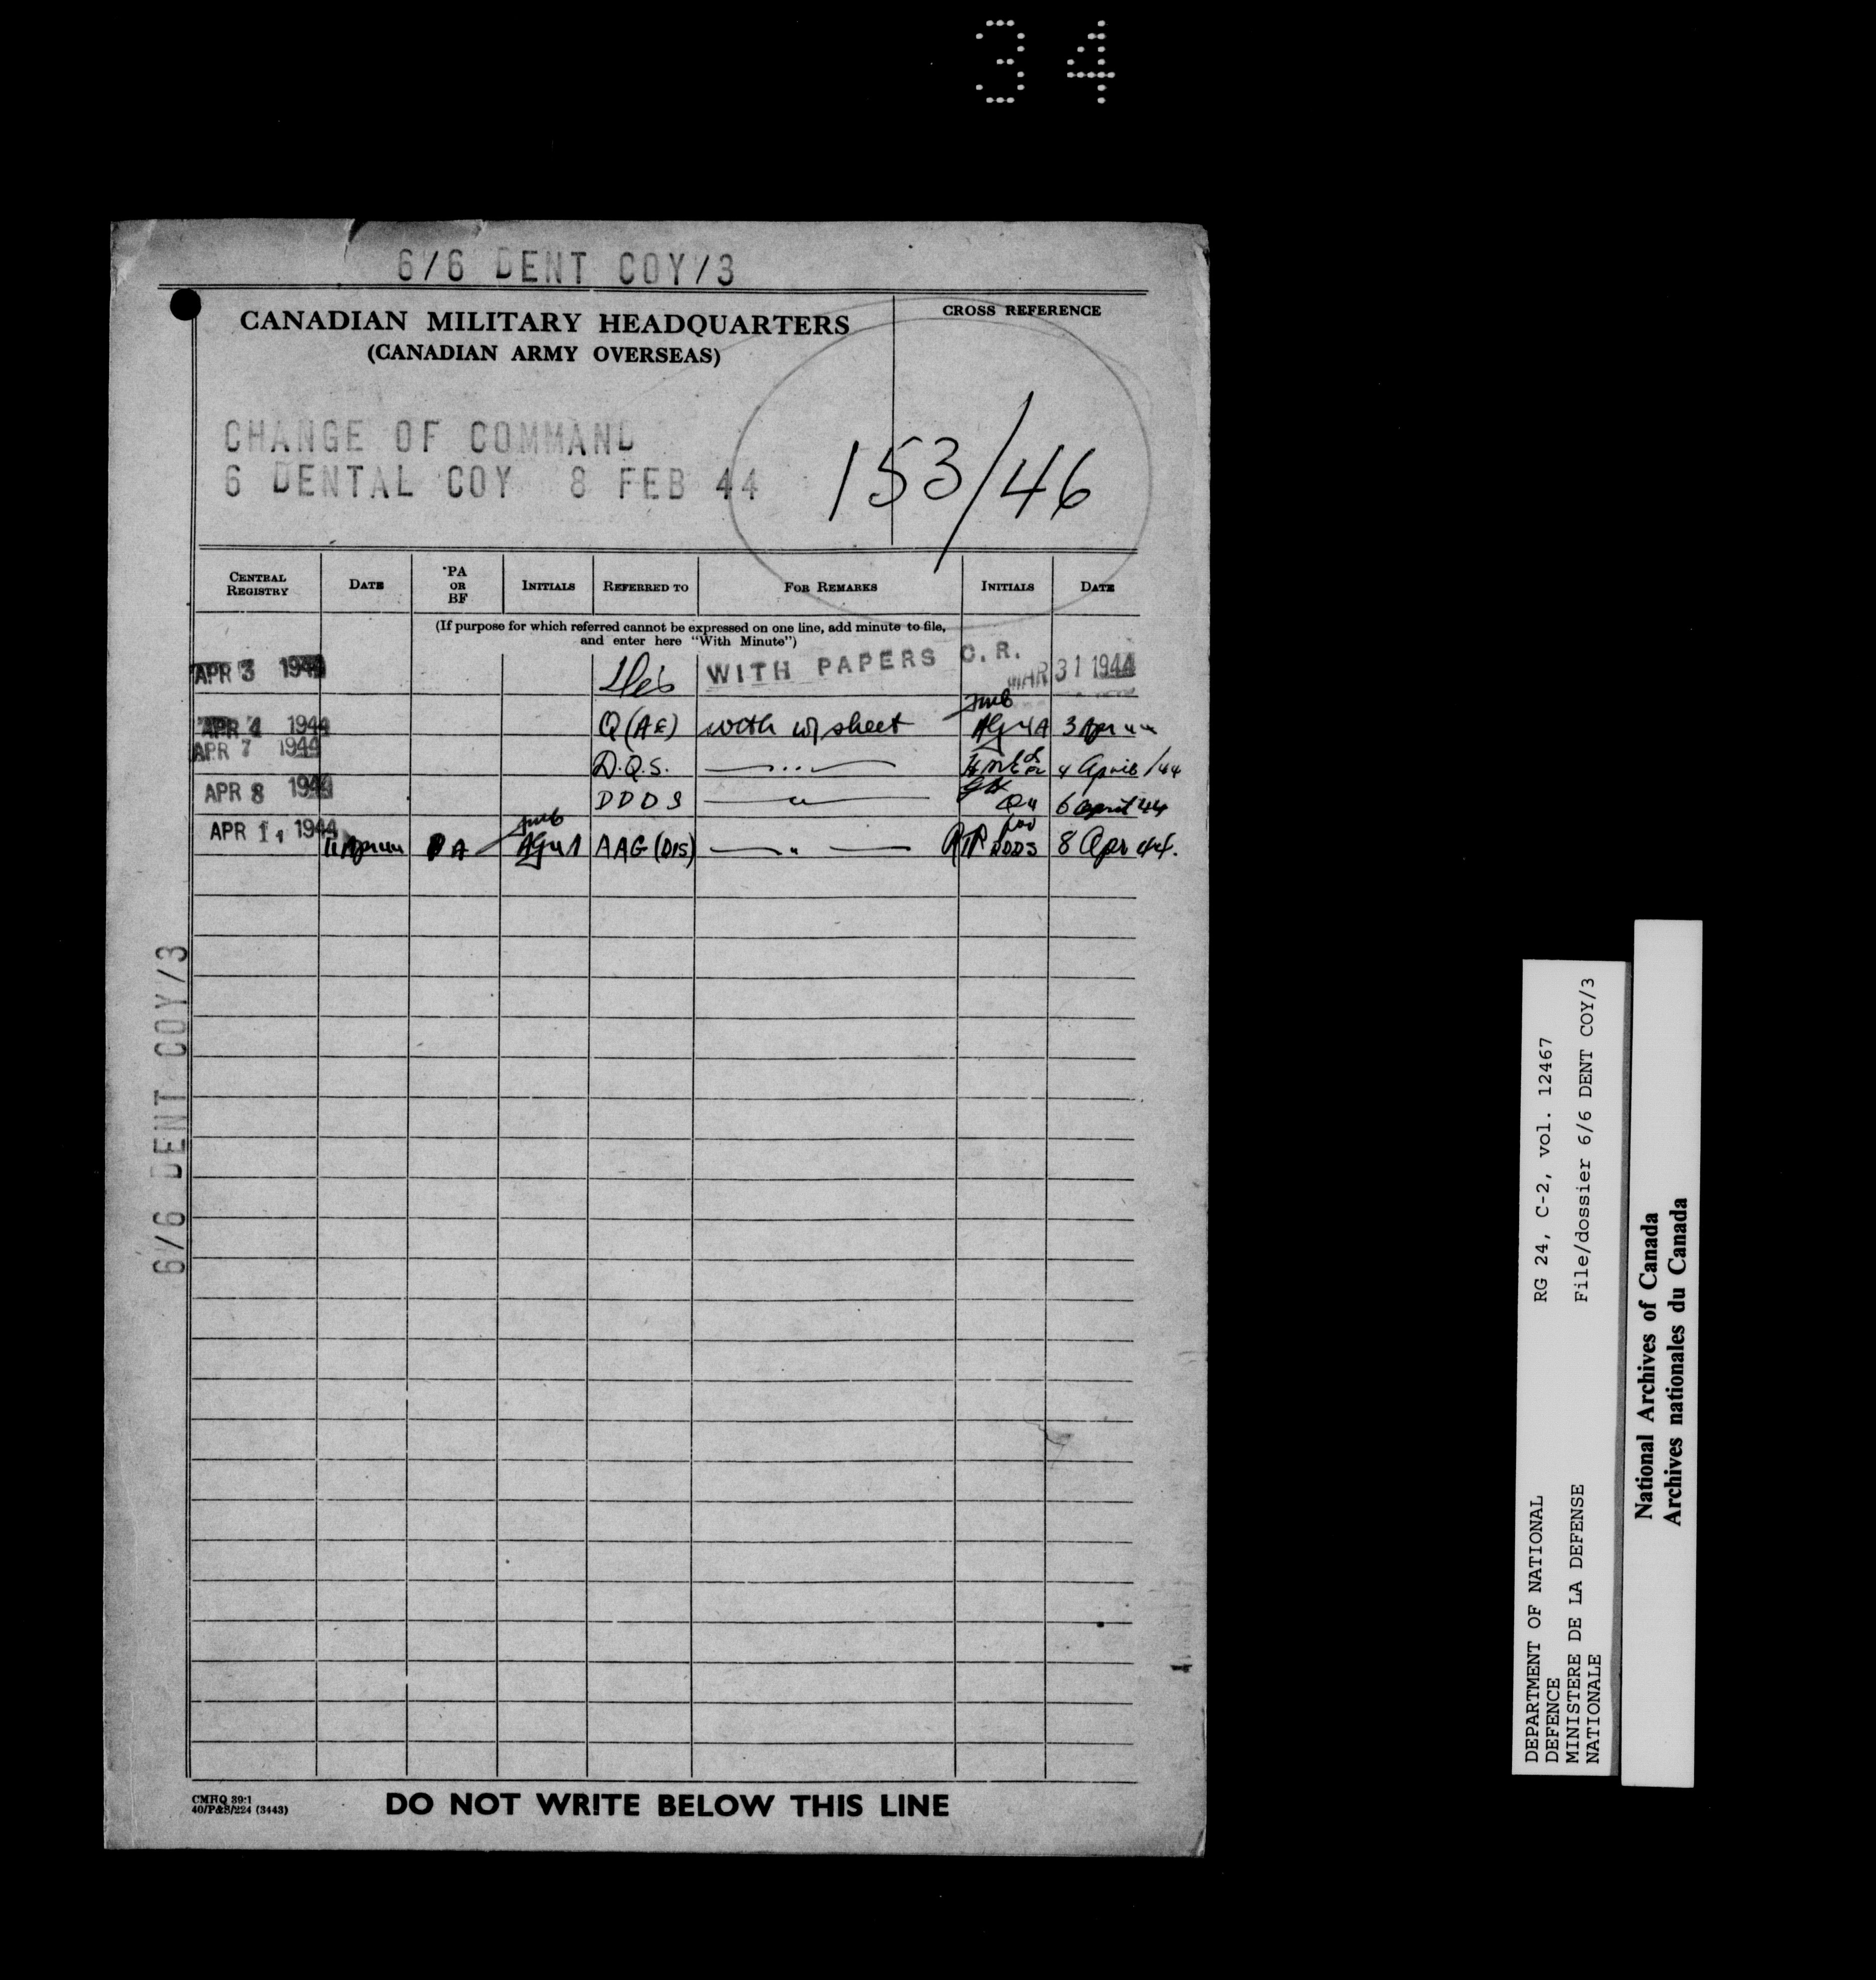 34
6/6 DENT COY/3
CANADIAN MILITARY HEADQUARTERS
(CANADIAN ARMY OVERSEAS)
CROSS REFERENCE
CHANGE OF COMMAND
6 DENTAL COY 8 FEB 44
153/46
CENTRAL REGISTRY DATE PA OR BF INITIALS REFERRED TO FOR REMARKS INITIALS DATE
(If purpose for which referred cannot be expressed on one line, add minute to file,
and enter here "With Minute")
APR 3 1944 WITH PAPERS C.R. MAR 31 1944
APR 4 1944 Q(AE) with w/ sheet 3 Apr 44
APR 7 1944 D.Q.S. 4 April/44
APR 8 1944 DDDS 6 April 44
APR 11 1944 11 Apr 44 PA AAG (DIS) DDDS 8 Apr 44.
6/6 DENT COY/3
CMHQ 39:1
40/P&S/224 (3443)
DO NOT WRITE BELOW THIS LINE
DEPARTMENT OF NATIONAL
DEFENCE
MINISTERE DE LA DEFENSE
NATIONALE
RG 24, C-2, vol. 12467
File/dossier 6/6 DENT COY/3
National Archives of Canada
Archives nationales du Canada